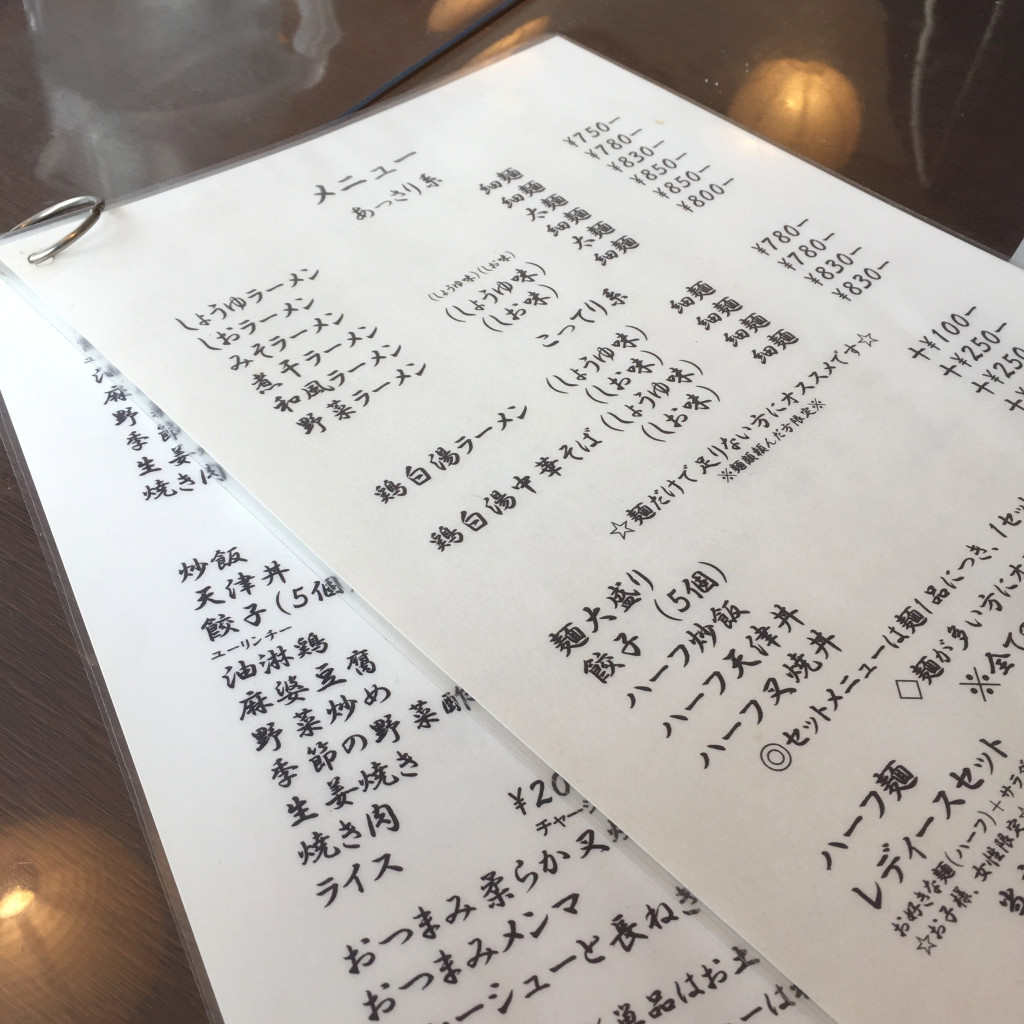 メニュー
あっさり系
しょうゆラーメン 細麺 ¥750ー
しおラーメン 細麺 ¥780ー
みそラーメン 太麺 ¥830ー
煮干ラーメン (しょうゆ味)(しお味) 細麺 ¥850ー
和風ラーメン (しょうゆ味) 太麺 ¥850ー
野菜ラーメン (しお味) 細麺 ¥800ー
こってり系
鶏白湯ラーメン (しょうゆ味) 細麺 ¥780ー
(しお味) 細麺 ¥780ー
鶏白湯中華そば (しょうゆ味) 細麺 ¥830ー
(しお味) 細麺 ¥830ー
☆麺だけで足りない方にオススメです☆
※麺飯頼んだ方限定※
麺大盛り +¥100ー
餃子 (5個) +¥250ー
ハーフ炒飯 +¥250
ハーフ天津丼
ハーフ叉焼丼
◎セットメニューは麺1品につき、1セッ
◇麺が多い方にオ
※全て
ハーフ麺
レディースセット
お好きな麺(ハーフ)+サラ
☆お子様、女性限定
麻
野
季節
生姜
焼き肉
炒飯
天津丼
餃子(5個
ユーリンチー
油淋鶏
麻婆豆腐
野菜炒め
季節の野菜
生姜焼き
焼き肉
ライス
¥20
チャー
おつまみ柔らか叉
おつまみメンマ
ーシューと長ねぎ
品はお土